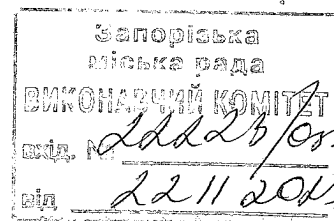 Запорізька
міська рада
ВИКОНАВЧИЙ КОМІТЕТ
вхід. №
від 22 11 202